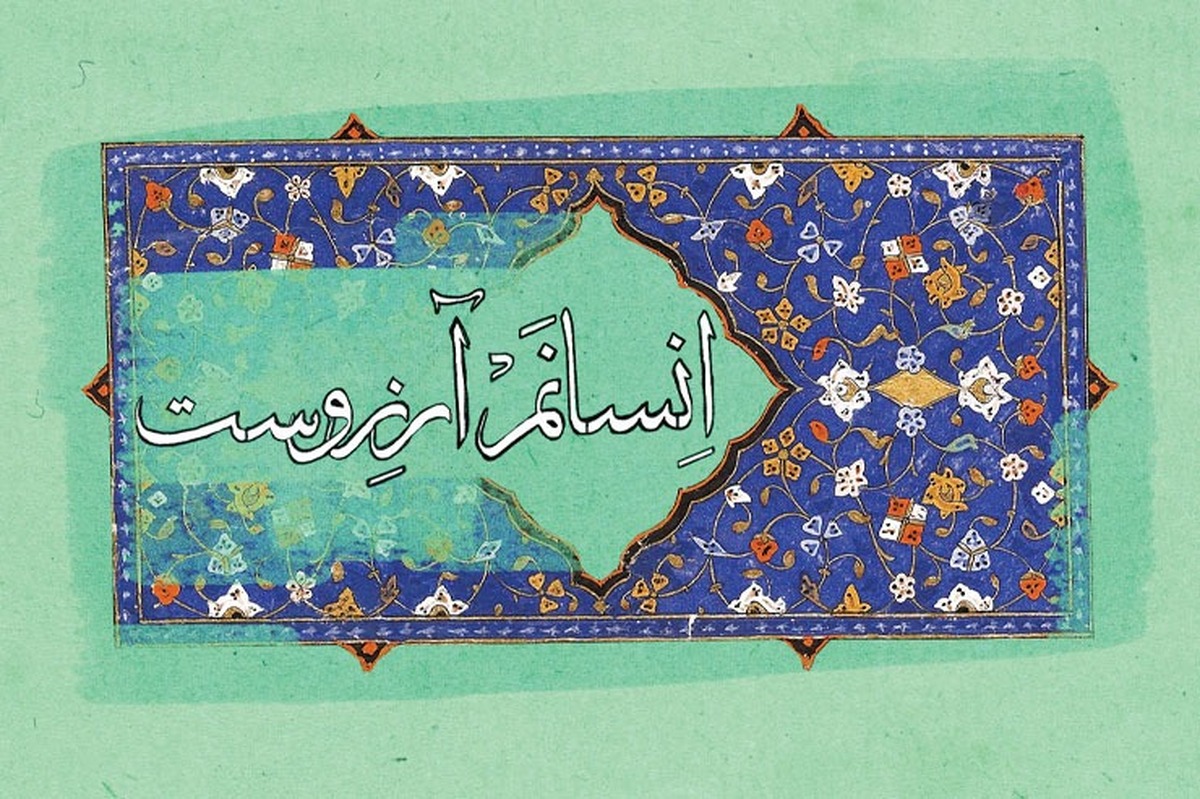 اِنسانَمْ آرِزوست